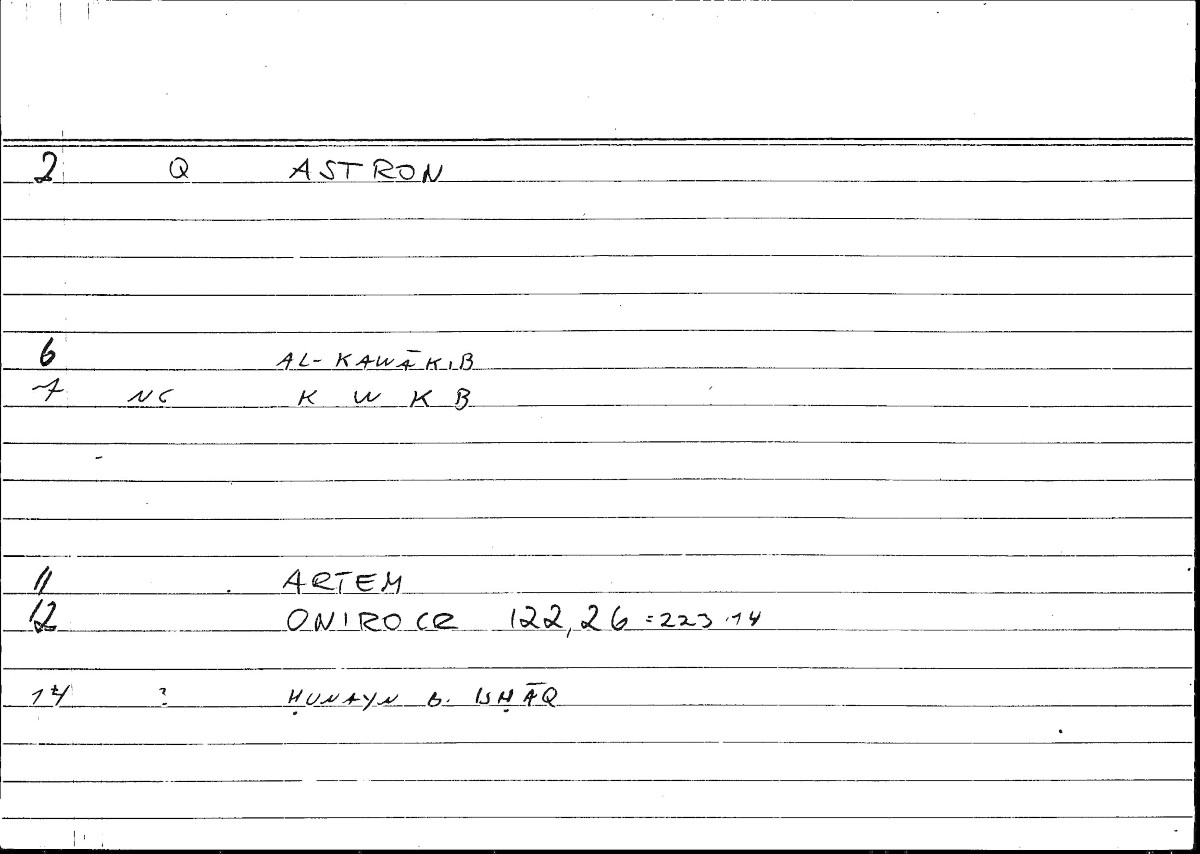 2 Q ASTRON
6 AL-KAWĀKIB
7 NC K W K B
11 ARTEM
12 ONIROCR 122,26 = 223.14
14 ? ḤUNAYN B. ISḤĀQ